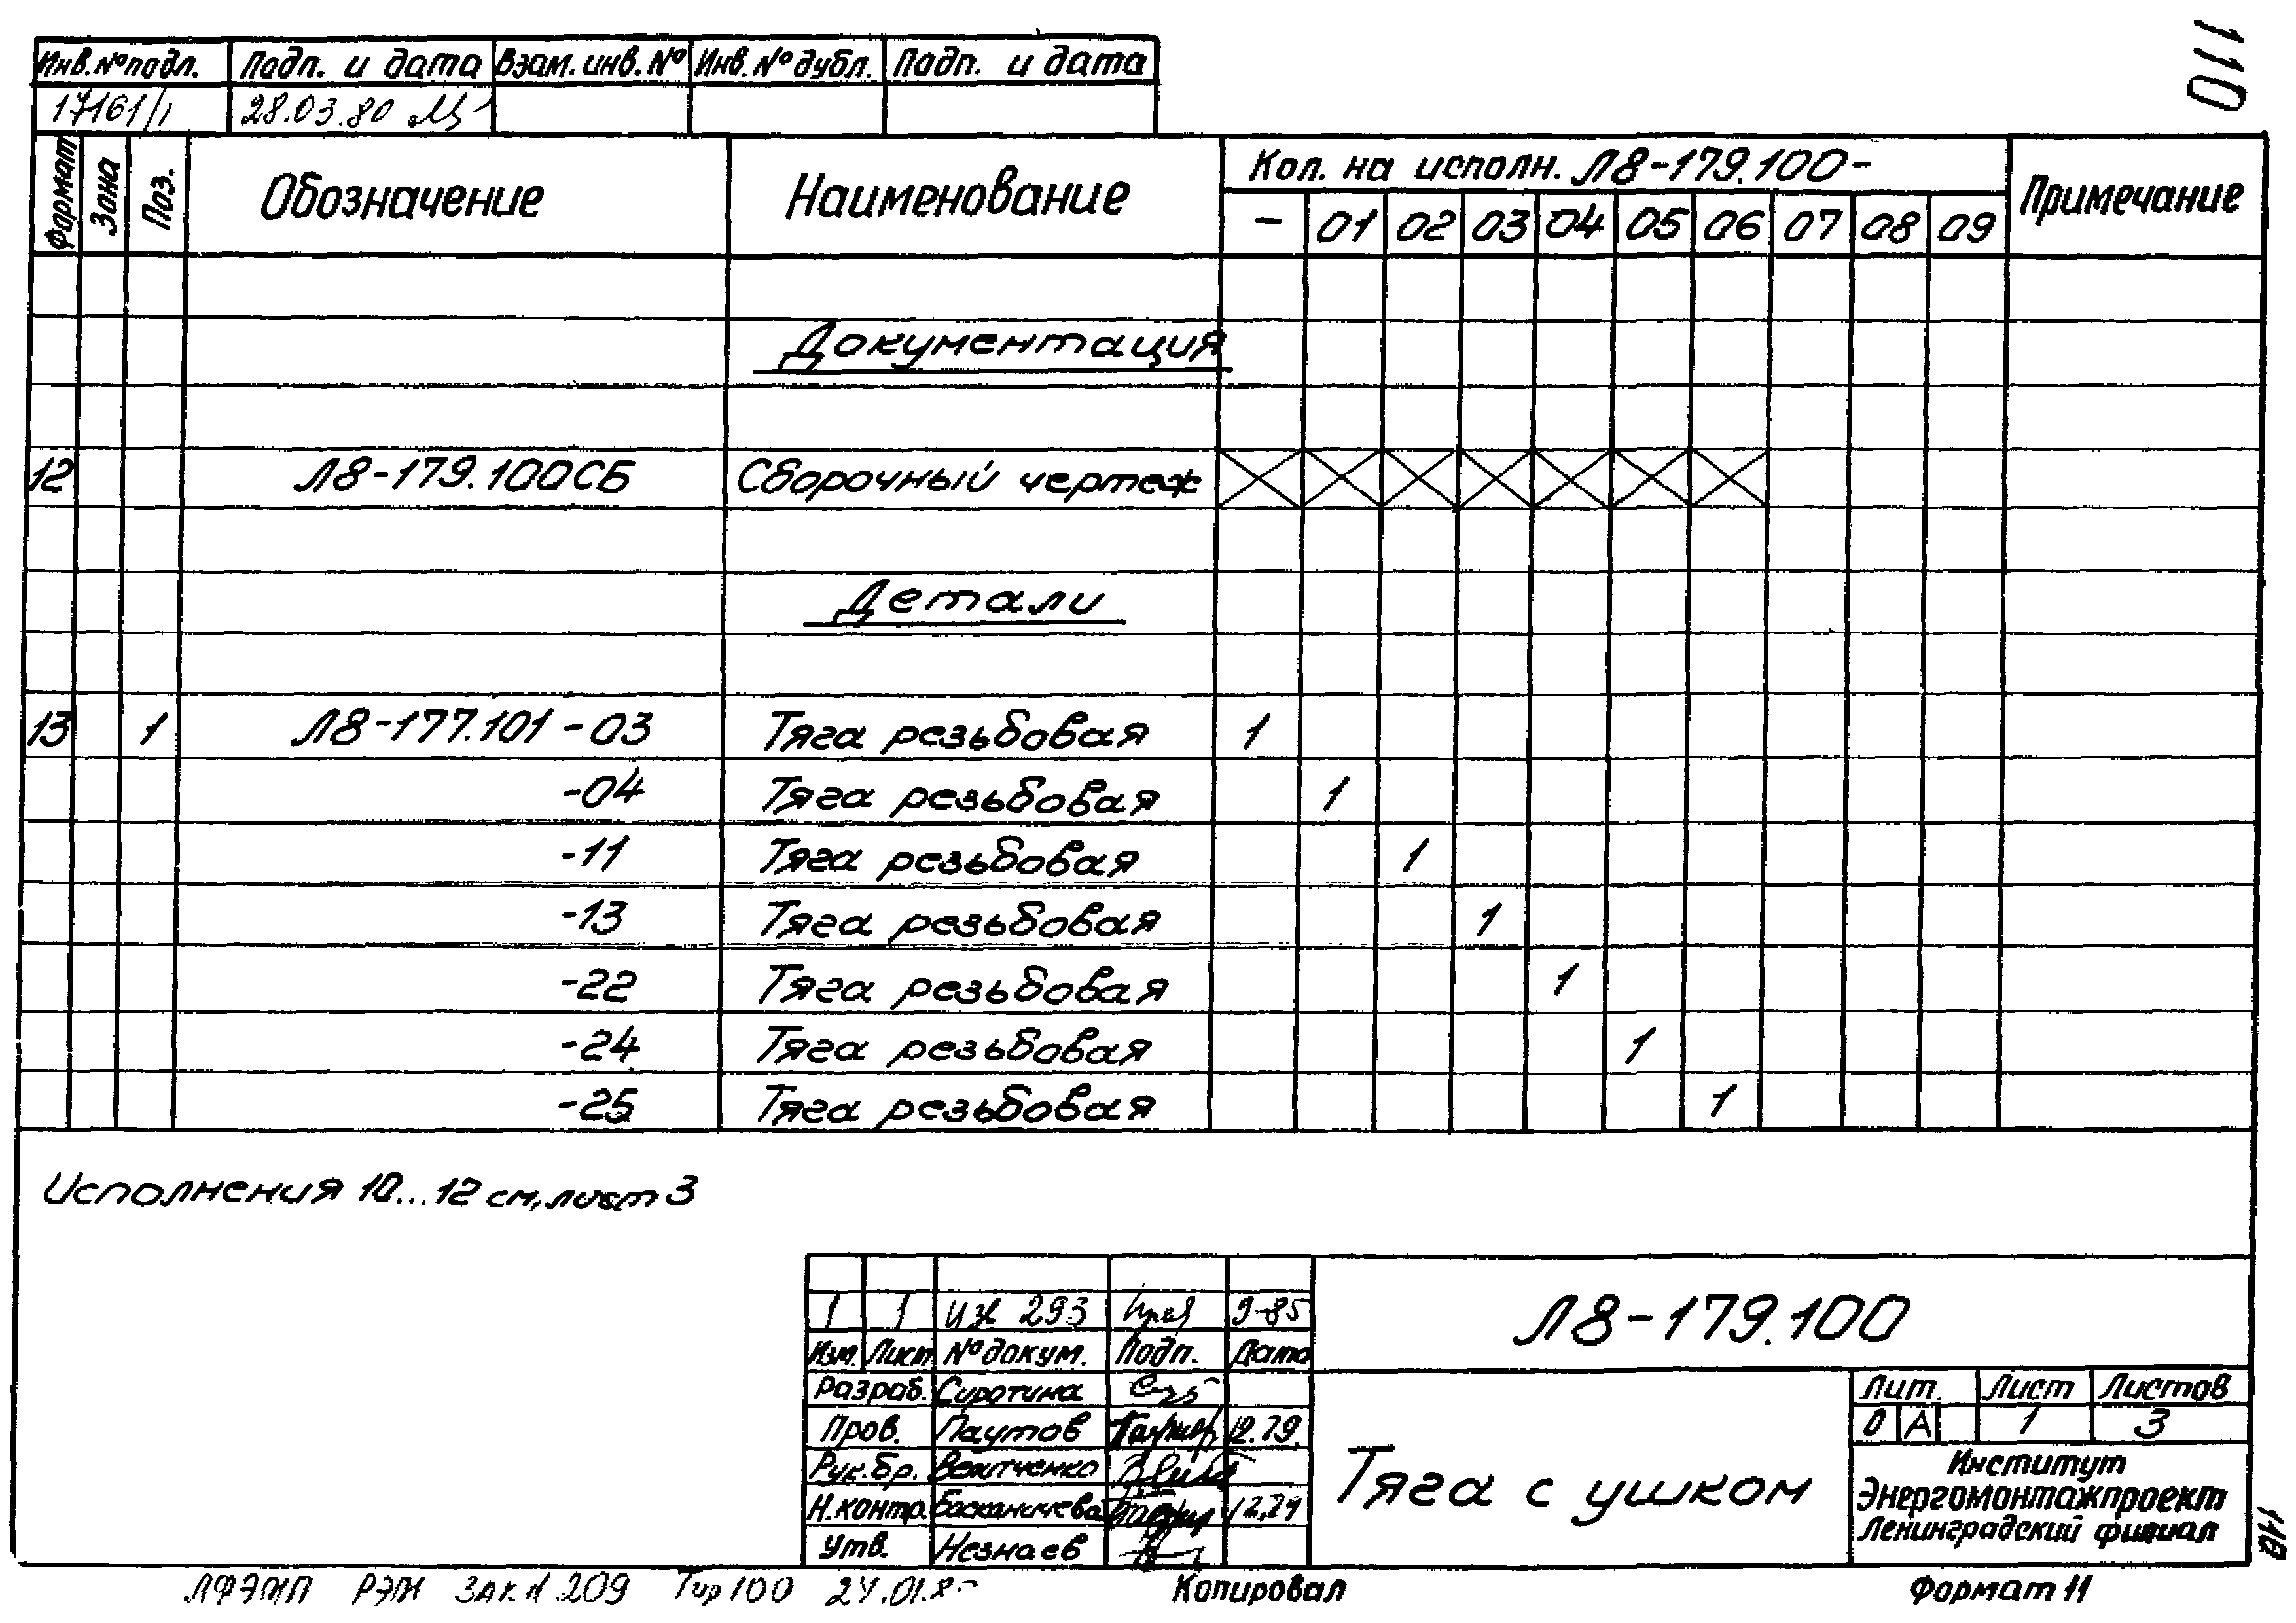 110
Инв.№подл. Подп. и дата Взам. инв. № Инв. № дубл. Подп. и дата
17161/1 28.03.80
Формат Зона Поз. Обозначение Наименование Кол. на исполн. Л8-179.100- Примечание
- 01 02 03 04 05 06 07 08 09
Документация
12 Л8-179.100СБ Сборочный чертеж
Детали
13 1 Л8-177.101-03 Тяга резьбовая 1
-04 Тяга резьбовая 1
-11 Тяга резьбовая 1
-13 Тяга резьбовая 1
-22 Тяга резьбовая 1
-24 Тяга резьбовая 1
-25 Тяга резьбовая 1
Исполнения 10...12 см, лист 3
1 1 293 9-85
Изм. Лист № докум. Подп. Дата
Л8-179.100
Разраб. Сиротина
Пров. Паутов 12.79.
Рук.бр.
Н.контр. 12,79
Утв. Незнаев
Тяга с ушком
Лит. Лист Листов
О А 1 3
Институт
Энергомонтажпроект
Ленинградский филиал
110
ЛФЭМП РЭМ ЗАК № 209 Тир 100
Копировал
Формат 11